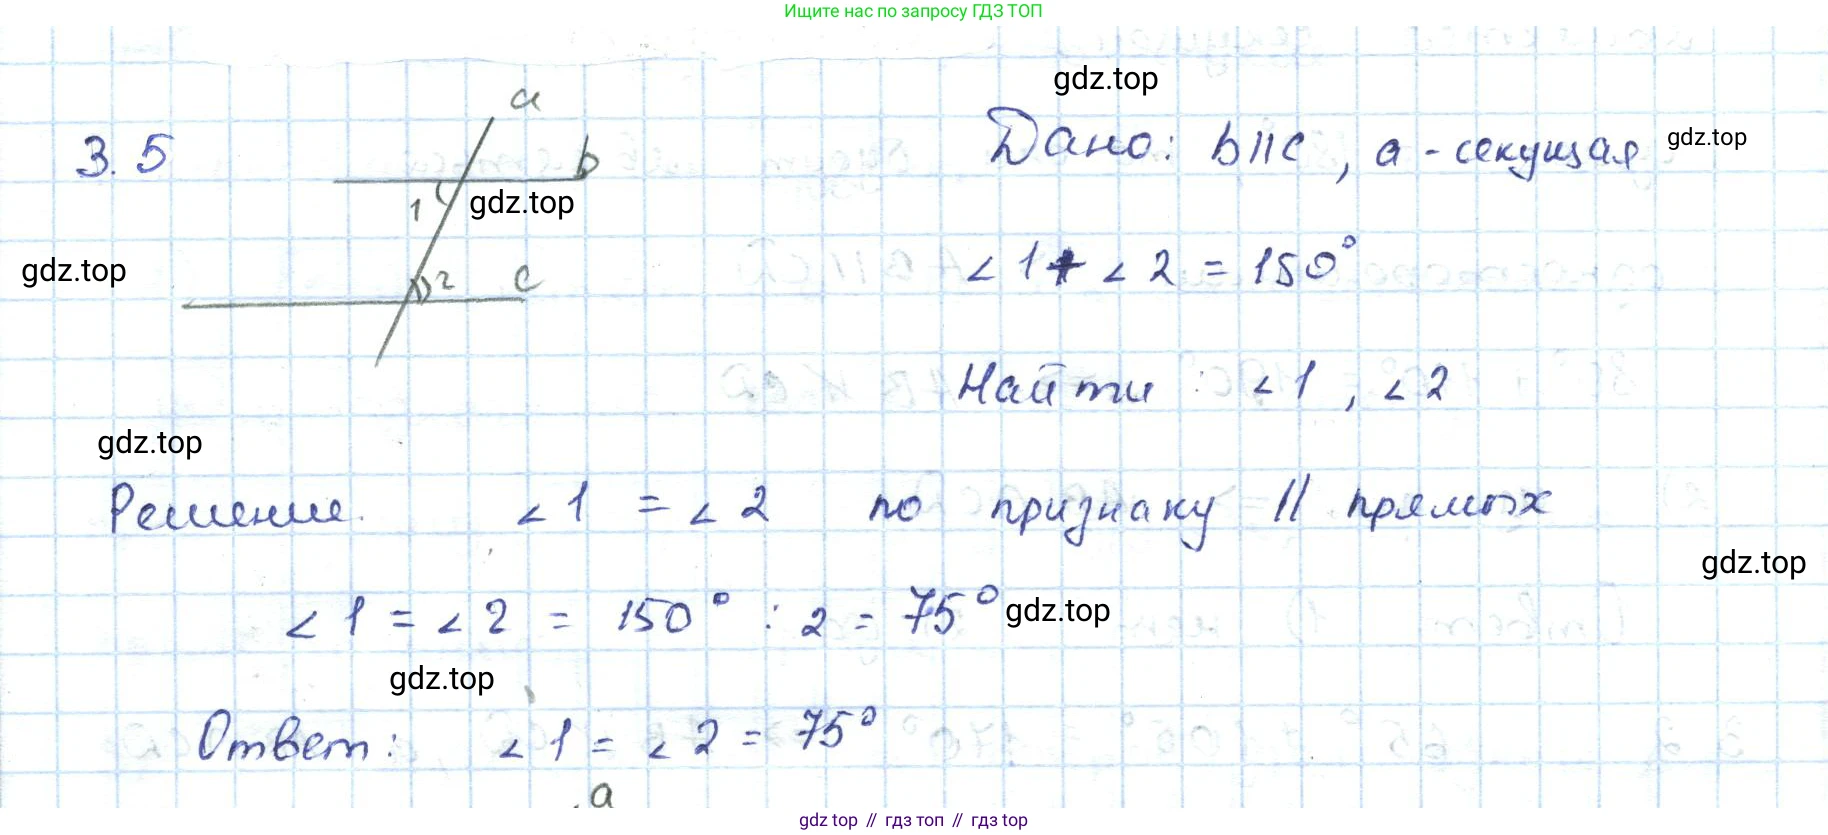 Ищите нас по запросу ГДЗ ТОП
gdz.top
a
3.5
b
Дано: b||c, a - секущая
gdz.top
1
gdz.top
∠1 + ∠2 = 150°
gdz.top
2
c
Найти: ∠1, ∠2
gdz.top
Решение. ∠1 = ∠2 по признаку || прямых
gdz.top
∠1 = ∠2 = 150° : 2 = 75°
gdz.top
gdz.top
Ответ: ∠1 = ∠2 = 75°
a
gdz top // гдз топ // гдз top